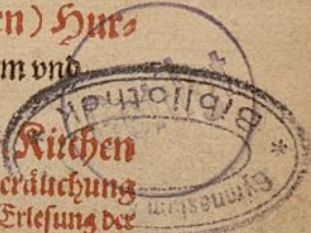 en) Hur⸗
m vnd
Kirchen
eräuchung
Erlesung der
Bibliothek
Gymnasium